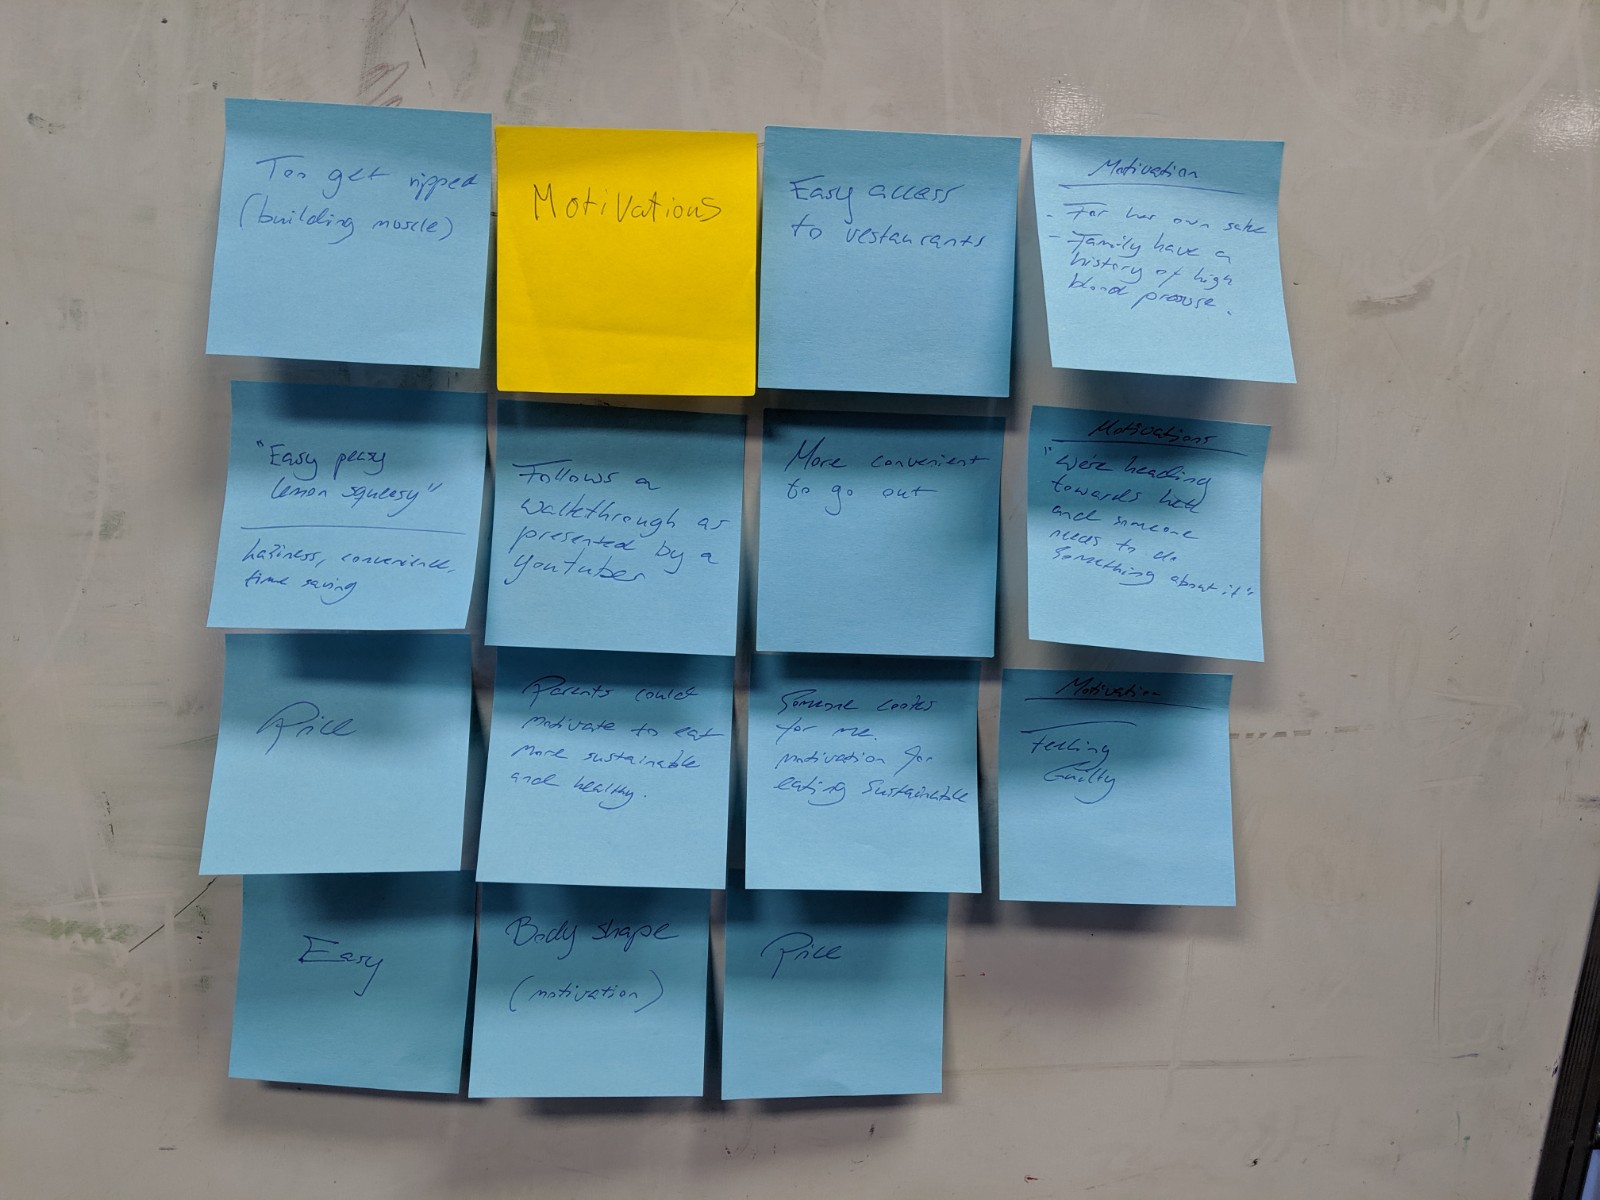 To get ripped
(building muscle)
Motivations
Easy access
to restaurants
Motivation
- For her own sake
- Family have a
history of high
blood pressure.
"Easy peasy
lemon squeesy"
laziness, convenience,
time saving
Follows a
walkthrough as
presented by a
youtuber
More convenient
to go out
Motivations
"We're heading
towards hell
and someone
needs to do
something about it"
Price
Parents could
motivate to eat
more sustainable
and healthy.
Someone cooks
for me.
motivation for
eating sustainable
Motivation
Feeling
Guilty
Easy
Body shape
(motivation)
Price